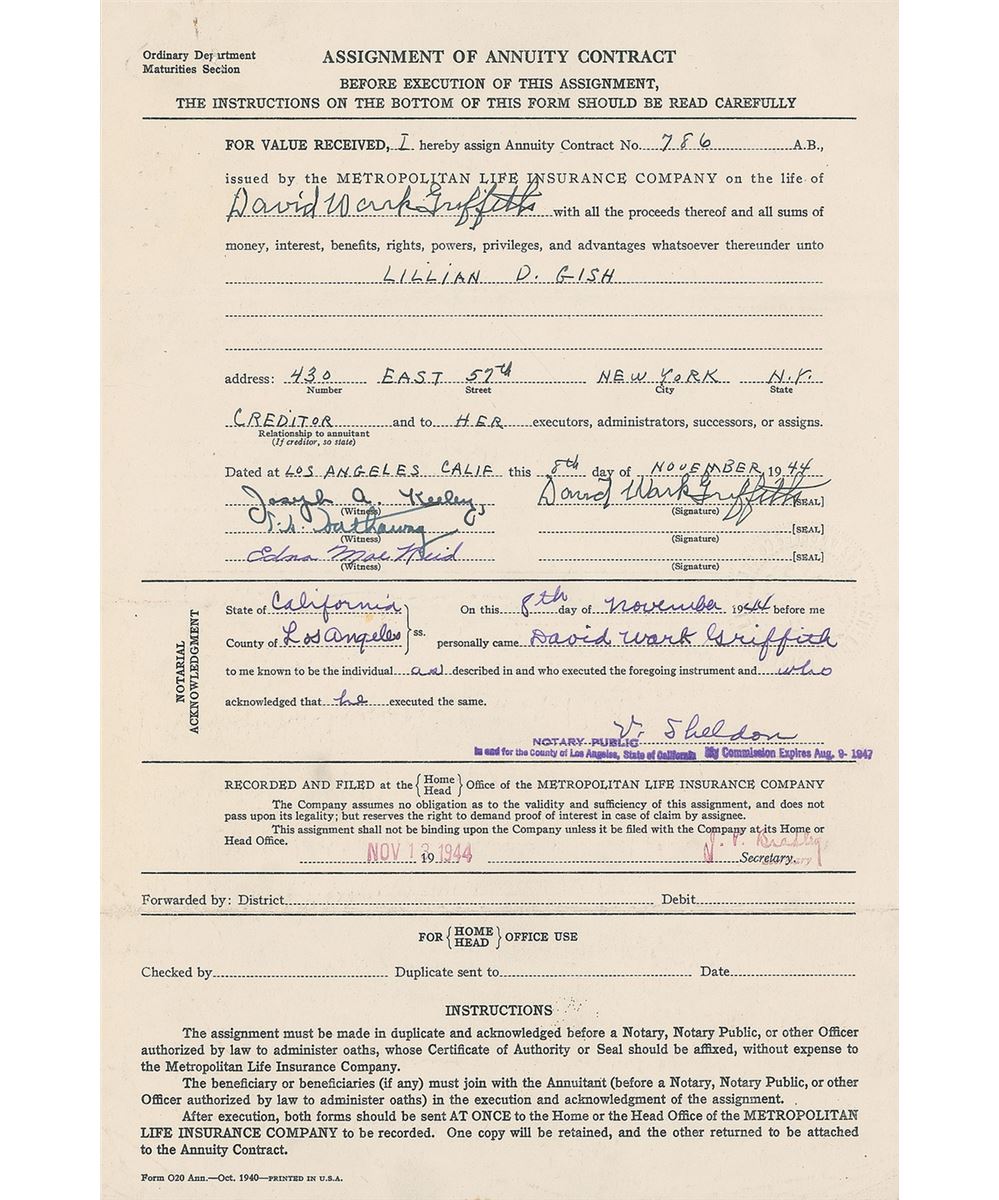 Ordinary Department
Maturities Section
ASSIGNMENT OF ANNUITY CONTRACT
BEFORE EXECUTION OF THIS ASSIGNMENT,
THE INSTRUCTIONS ON THE BOTTOM OF THIS FORM SHOULD BE READ CAREFULLY
FOR VALUE RECEIVED, I hereby assign Annuity Contract No. 786 A.B.,
issued by the METROPOLITAN LIFE INSURANCE COMPANY on the life of
David Wark Griffith with all the proceeds thereof and all sums of
money, interest, benefits, rights, powers, privileges, and advantages whatsoever thereunder unto
LILLIAN D. GISH
address: 430 EAST 57th NEW YORK N.Y.
Number Street City State
CREDITOR and to HER executors, administrators, successors, or assigns.
Relationship to annuitant
(If creditor, so state)
Dated at LOS ANGELES CALIF this 8th day of NOVEMBER 1944
Joseph A. Keeley David Wark Griffith [SEAL]
(Witness) (Signature)
Hathaway [SEAL]
(Witness) (Signature)
Edna Mae Reid [SEAL]
(Witness) (Signature)
NOTARIAL
ACKNOWLEDGMENT
State of California On this 8th day of November 1944 before me
County of Los Angeles ss. personally came David Wark Griffith
to me known to be the individual as described in and who executed the foregoing instrument and who
acknowledged that he executed the same.
V. Sheldon
NOTARY PUBLIC
In and for the County of Los Angeles, State of California My Commission Expires Aug. 9- 1947
RECORDED AND FILED at the { Home Head } Office of the METROPOLITAN LIFE INSURANCE COMPANY
The Company assumes no obligation as to the validity and sufficiency of this assignment, and does not
pass upon its legality; but reserves the right to demand proof of interest in case of claim by assignee.
This assignment shall not be binding upon the Company unless it be filed with the Company at its Home or
Head Office.
NOV 13 1944 19 J. P. Bradley Secretary.
Forwarded by: District Debit
FOR { HOME HEAD } OFFICE USE
Checked by Duplicate sent to Date
INSTRUCTIONS
The assignment must be made in duplicate and acknowledged before a Notary, Notary Public, or other Officer
authorized by law to administer oaths, whose Certificate of Authority or Seal should be affixed, without expense to
the Metropolitan Life Insurance Company.
The beneficiary or beneficiaries (if any) must join with the Annuitant (before a Notary, Notary Public, or other
Officer authorized by law to administer oaths) in the execution and acknowledgment of the assignment.
After execution, both forms should be sent AT ONCE to the Home or the Head Office of the METROPOLITAN
LIFE INSURANCE COMPANY to be recorded. One copy will be retained, and the other returned to be attached
to the Annuity Contract.
Form O20 Ann.—Oct. 1940—PRINTED IN U.S.A.